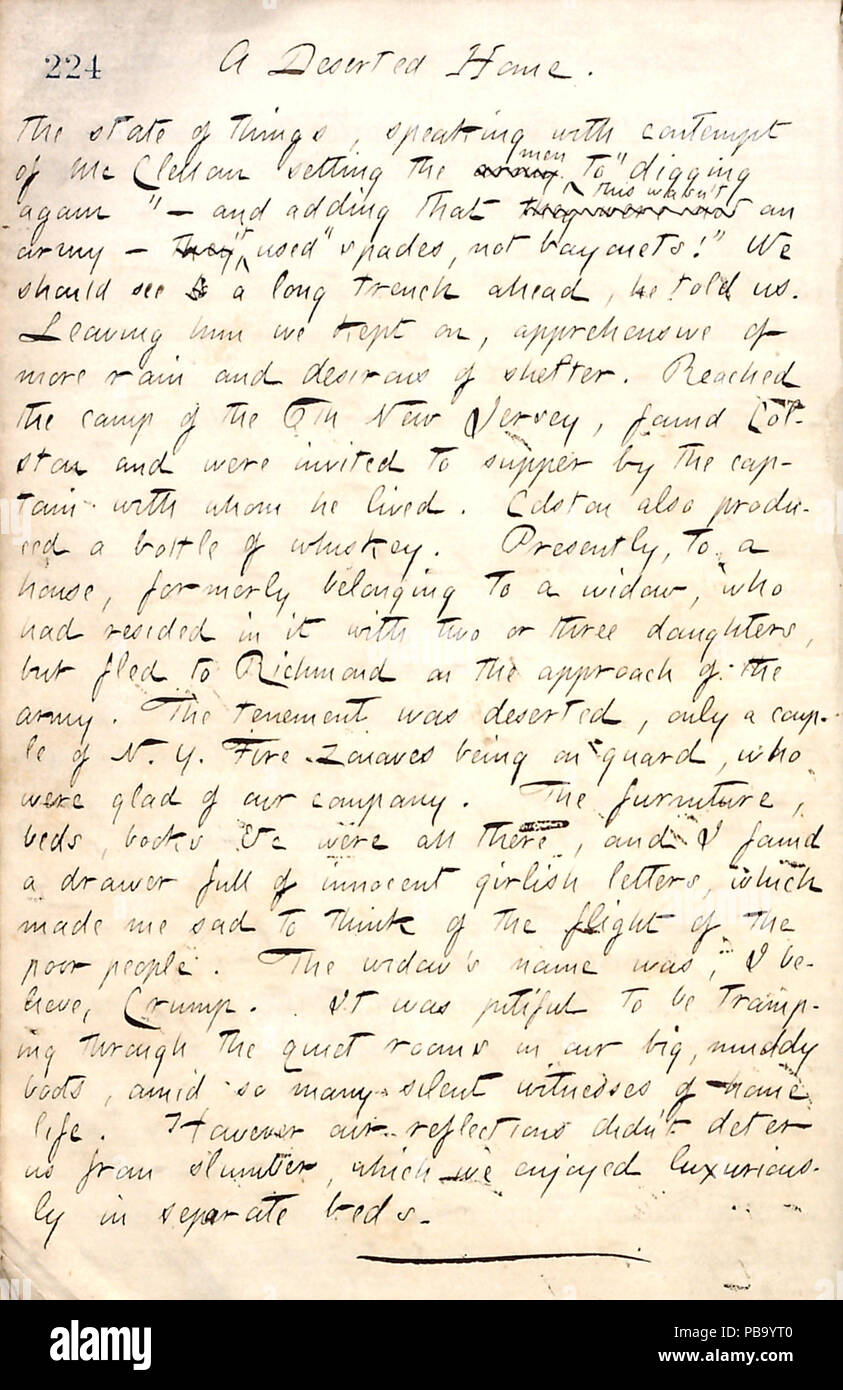 224
A Deserted Home.
the state of things, speaking with contempt
of Mc Clellan setting the army men to "digging
again" — and adding that they were not this wasn't an
army — they "it used" spades, not bayonets!" We
should see a long trench ahead, he told us.
Leaving him we kept on, apprehensive of
more rain and desirous of shelter. Reached
the camp of the 6th New Jersey, found Col-
ston and were invited to supper by the cap-
tain with whom he lived. Colston also produ-
ced a bottle of whiskey. Presently, to a
house, formerly belonging to a widow, who
had resided in it with two or three daughters,
but fled to Richmond on the approach of the
army. The tenement was deserted, only a coup-
le of N. Y. Fire Zouaves being on guard, who
were glad of our company. The furniture,
beds, books &c were all there, and I found
a drawer full of innocent girlish letters, which
made me sad to think of the flight of the
poor people. The widow's name was, I be-
lieve, Crump. It was pitiful to be tramp-
ing through the quiet rooms in our big, muddy
boots, amid so many silent witnesses of home
life. However our reflections didn't deter
us from slumber, which we enjoyed luxurious-
ly in separate beds.
alamy
Image ID: PB9YT0
www.alamy.com